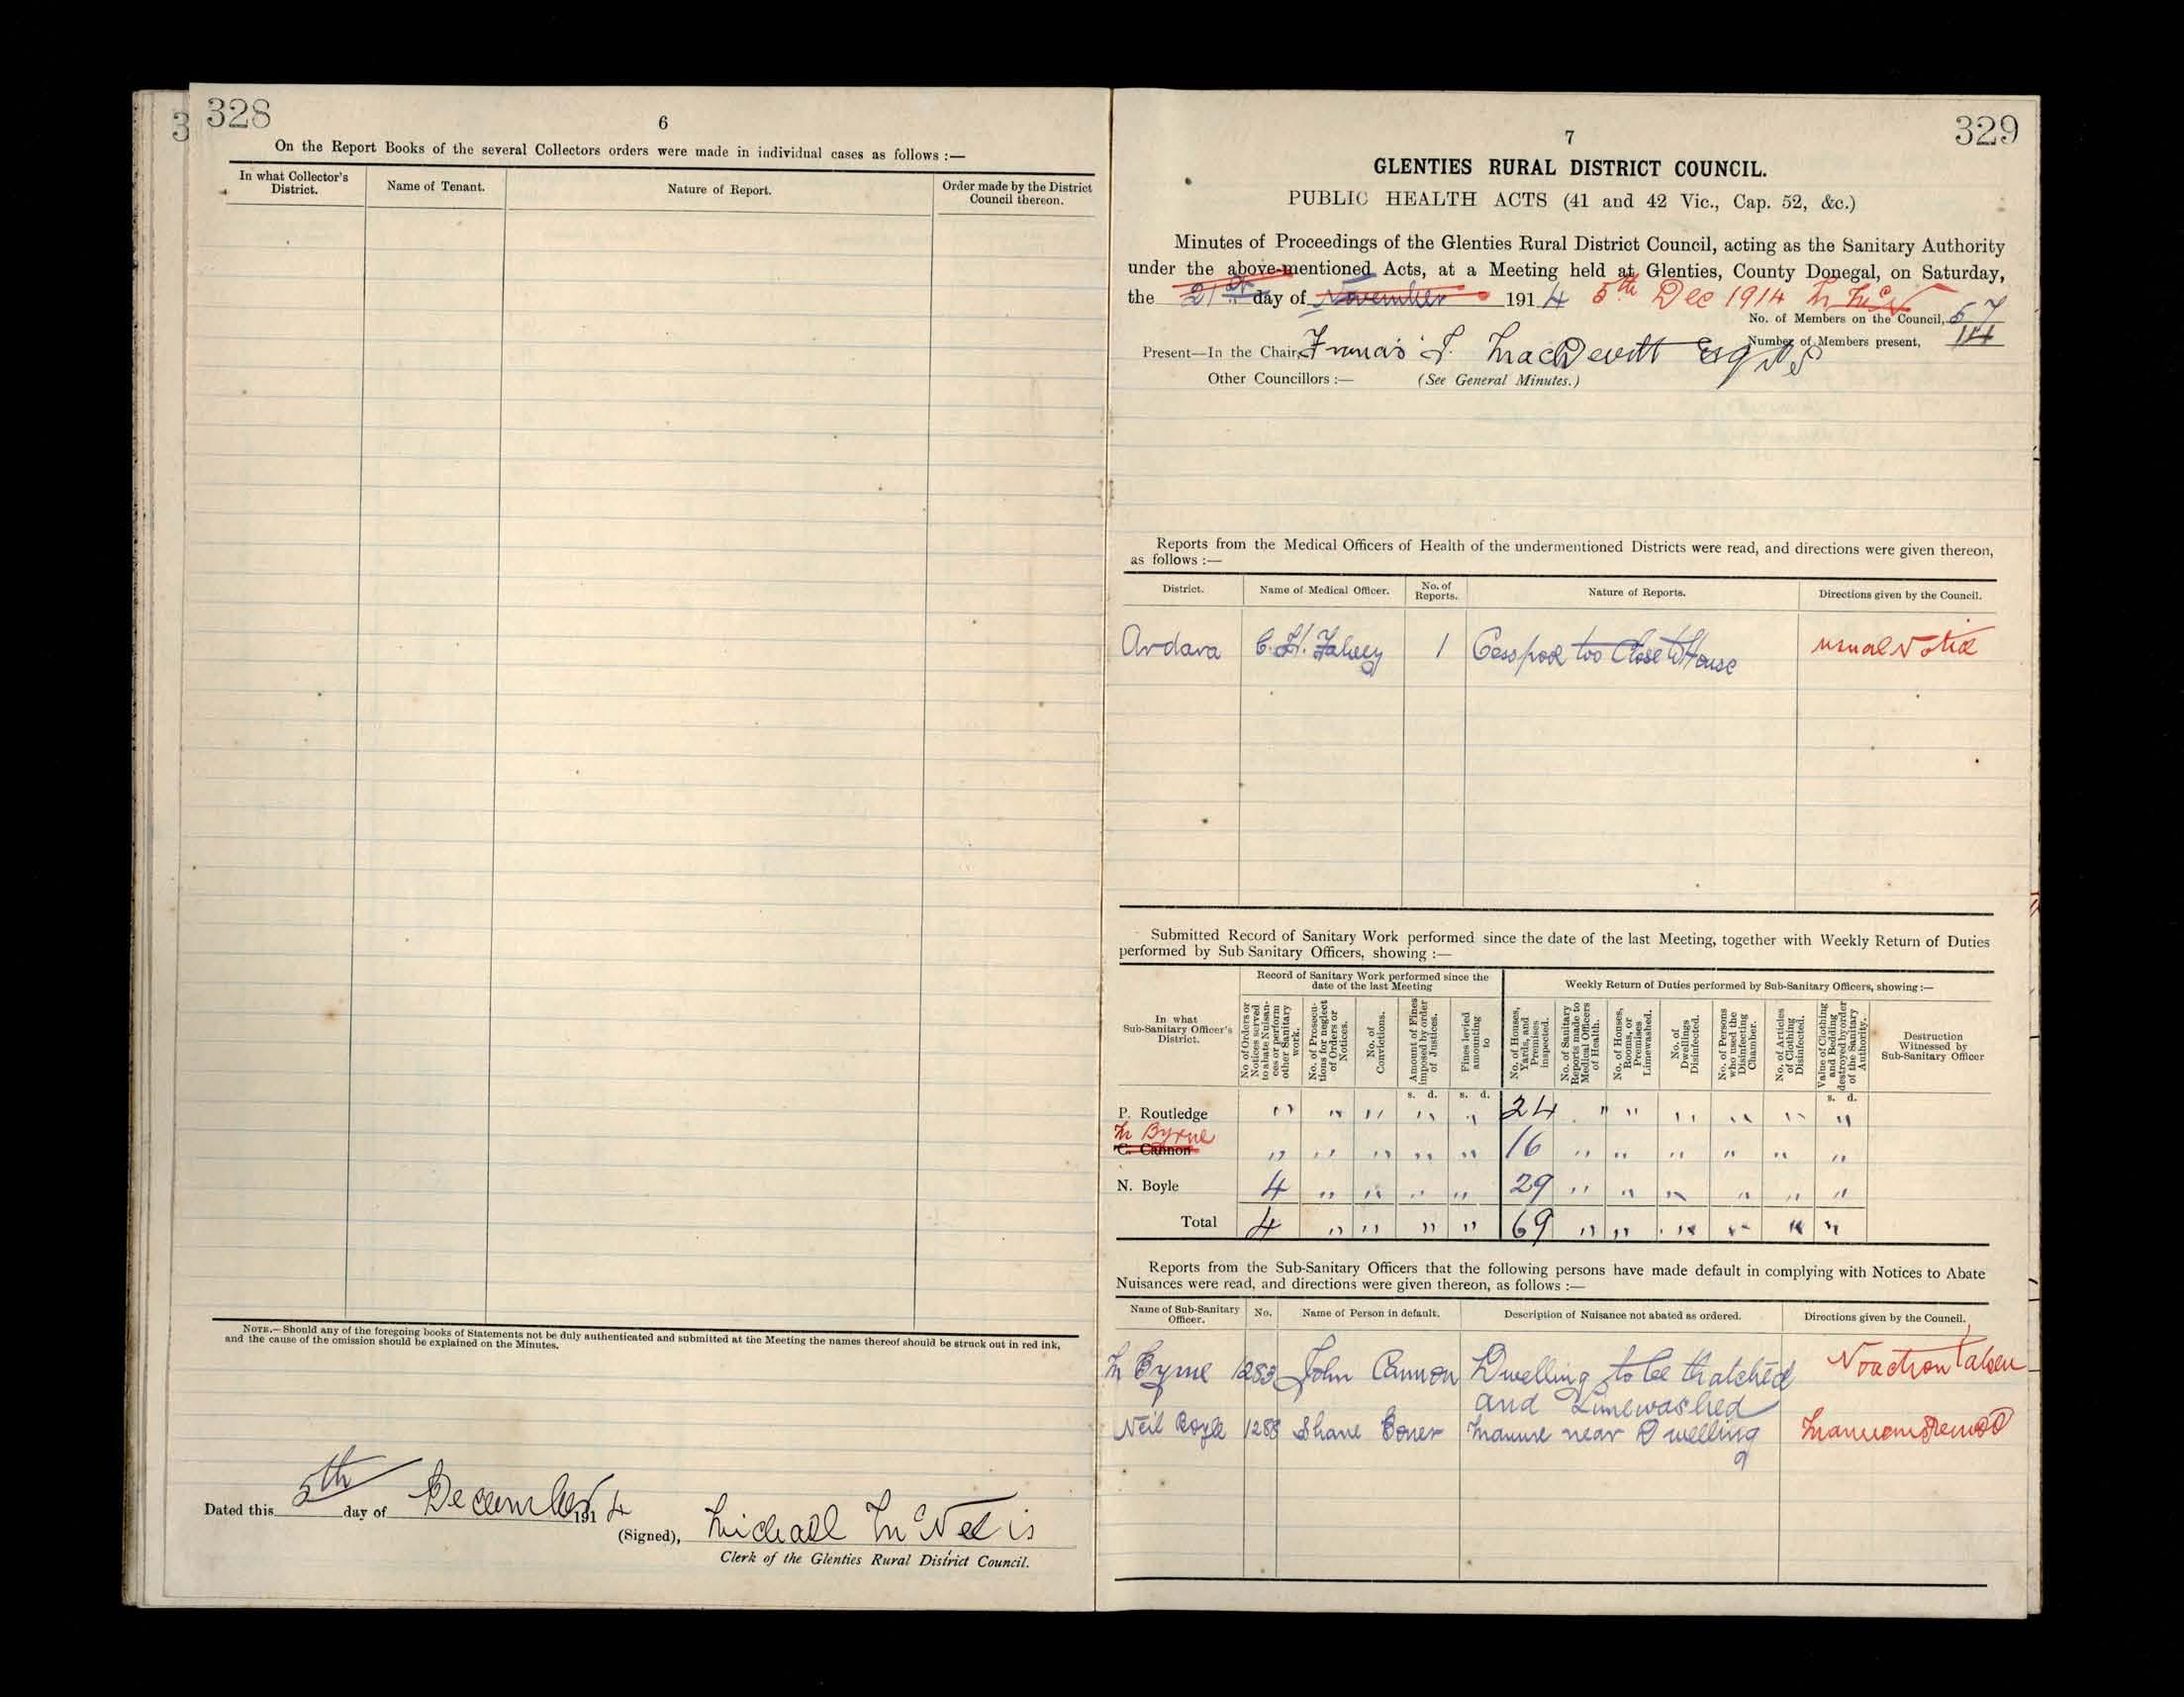 328
3
6
On the Report Books of the several Collectors orders were made in individual cases as follows :—
In what Collector's District.
Name of Tenant.
Nature of Report.
Order made by the District Council thereon.
NOTE.—Should any of the foregoing books of Statements not be duly authenticated and submitted at the Meeting the names thereof should be struck out in red ink,
and the cause of the omission should be explained on the Minutes.
Dated this 5th day of December 1914
(Signed), Michael McNelis
Clerk of the Glenties Rural District Council.
329
7
GLENTIES RURAL DISTRICT COUNCIL.
PUBLIC HEALTH ACTS (41 and 42 Vic., Cap. 52, &c.)
Minutes of Proceedings of the Glenties Rural District Council, acting as the Sanitary Authority
under the above-mentioned Acts, at a Meeting held at Glenties, County Donegal, on Saturday,
the 21st day of November 1914 5th Dec 1914 M McN
No. of Members on the Council, 57
Number of Members present, 14
Present—In the Chair, Francis J. MacDevitt Esq
Other Councillors :— (See General Minutes.)
Reports from the Medical Officers of Health of the undermentioned Districts were read, and directions were given thereon,
as follows :—
District.
Name of Medical Officer.
No. of Reports.
Nature of Reports.
Directions given by the Council.
Ardara C. H. Falvey 1 Cesspool too Close to House usual Notice
Submitted Record of Sanitary Work performed since the date of the last Meeting, together with Weekly Return of Duties
performed by Sub Sanitary Officers, showing :—
In what Sub-Sanitary Officer's District.
Record of Sanitary Work performed since the date of the last Meeting
Weekly Return of Duties performed by Sub-Sanitary Officers, showing :—
No of Orders or Notices served to abate Nuisances or perform other Sanitary work.
No. of Prosecutions for neglect of Orders or Notices.
No. of Convictions.
Amount of Fines imposed by order of Justices.
Fines levied amounting to
No. of Houses, Yards, and Premises inspected.
No. of Sanitary Reports made to Medical Officers of Health.
No. of Houses, Rooms, or Premises Limewashed.
No. of Dwellings Disinfected.
No. of Persons who used the Disinfecting Chamber.
No. of Articles of Clothing Disinfected.
Value of Clothing and Bedding destroyed by order of the Sanitary Authority.
Destruction Witnessed by Sub-Sanitary Officer
s. d. s. d. s. d.
P. Routledge " " " " " 24 " " " " " "
M Byrne
C. Cannon " " " " " 16 " " " " " "
N. Boyle 4 " " " " 29 " " " " " "
Total 4 " " " " 69 " " " " " "
Reports from the Sub-Sanitary Officers that the following persons have made default in complying with Notices to Abate
Nuisances were read, and directions were given thereon, as follows :—
Name of Sub-Sanitary Officer.
No.
Name of Person in default.
Description of Nuisance not abated as ordered.
Directions given by the Council.
M Byrne 1283 John Cannon Dwelling to be thatched No action taken
and Limewashed
Neil Boyle 1288 Shane Boner Manure near Dwelling